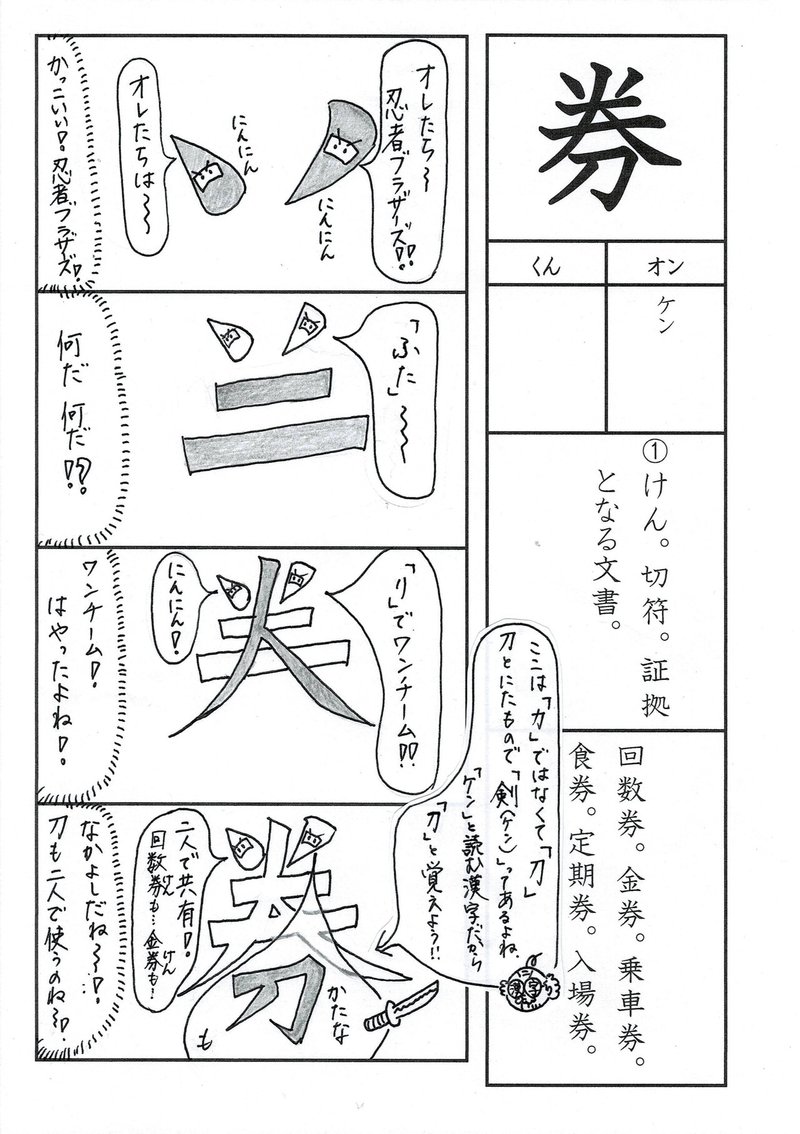 券
オン
くん
ケン
①けん。切符。証拠
となる文書。
回数券。金券。乗車券。
食券。定期券。入場券。
オレたち〜
忍者ブラザーズッ!!
にんにん
にんにん
オレたちは〜〜
かっこいい!。忍者ブラザーズ!。
「ふた」〜〜
何だ 何だ!?
「り」でワンチーム!!
にんにん!
ワンチーム!
はやったよね!。
ここは「力」ではなくて「刀」
刀とにたもので「剣(ケン)」ってあるよね、
「ケン」と読む漢字だから
「刀」と覚えよう!!
二人で共有!。
回数券も…金券も…
けん
けん
かたな
も
なかよしだね〜〜!。
刀も二人で使うのね〜!。